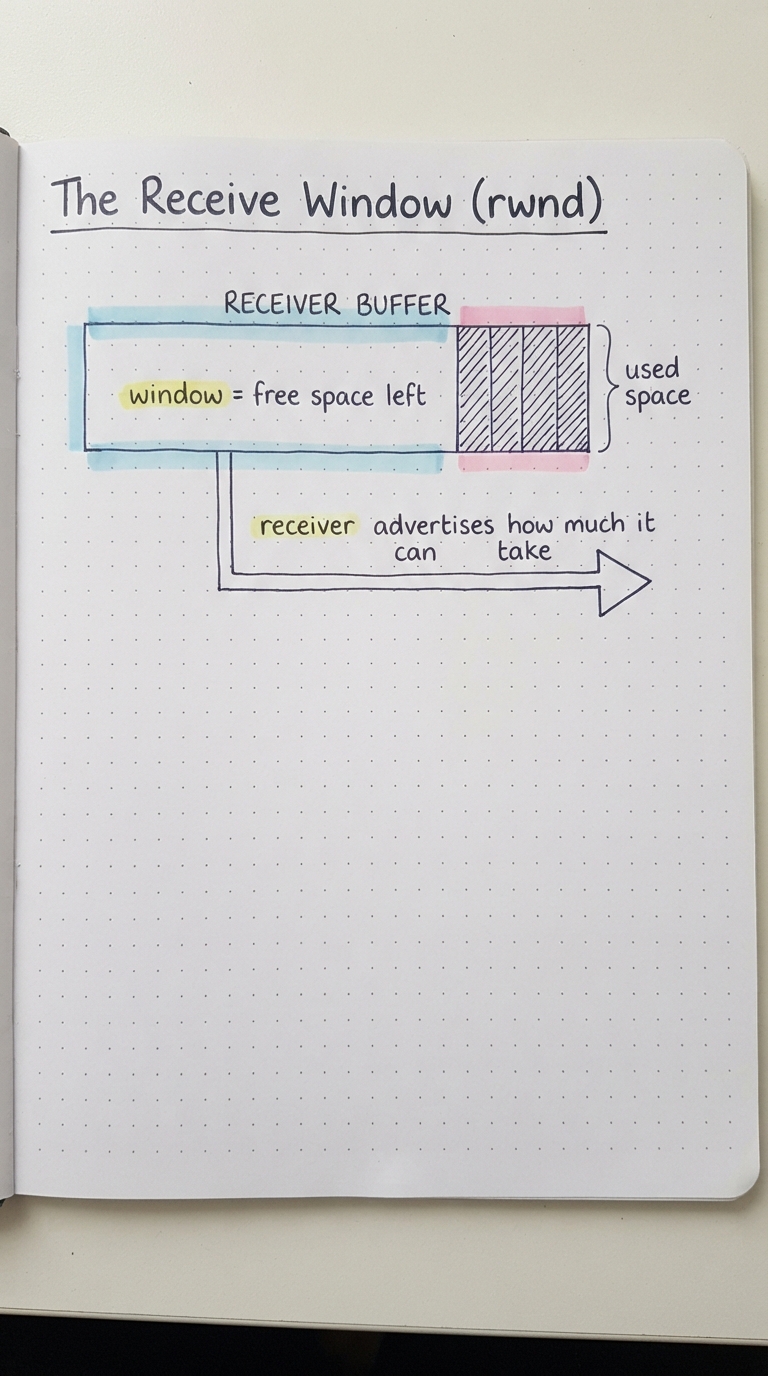 The Receive Window (rwnd)
RECEIVER BUFFER
window = free space left
used
space
receiver advertises how much it
can take